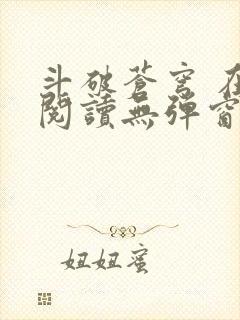 斗破苍穹 在
閱讀無彈窗
妞妞蜜